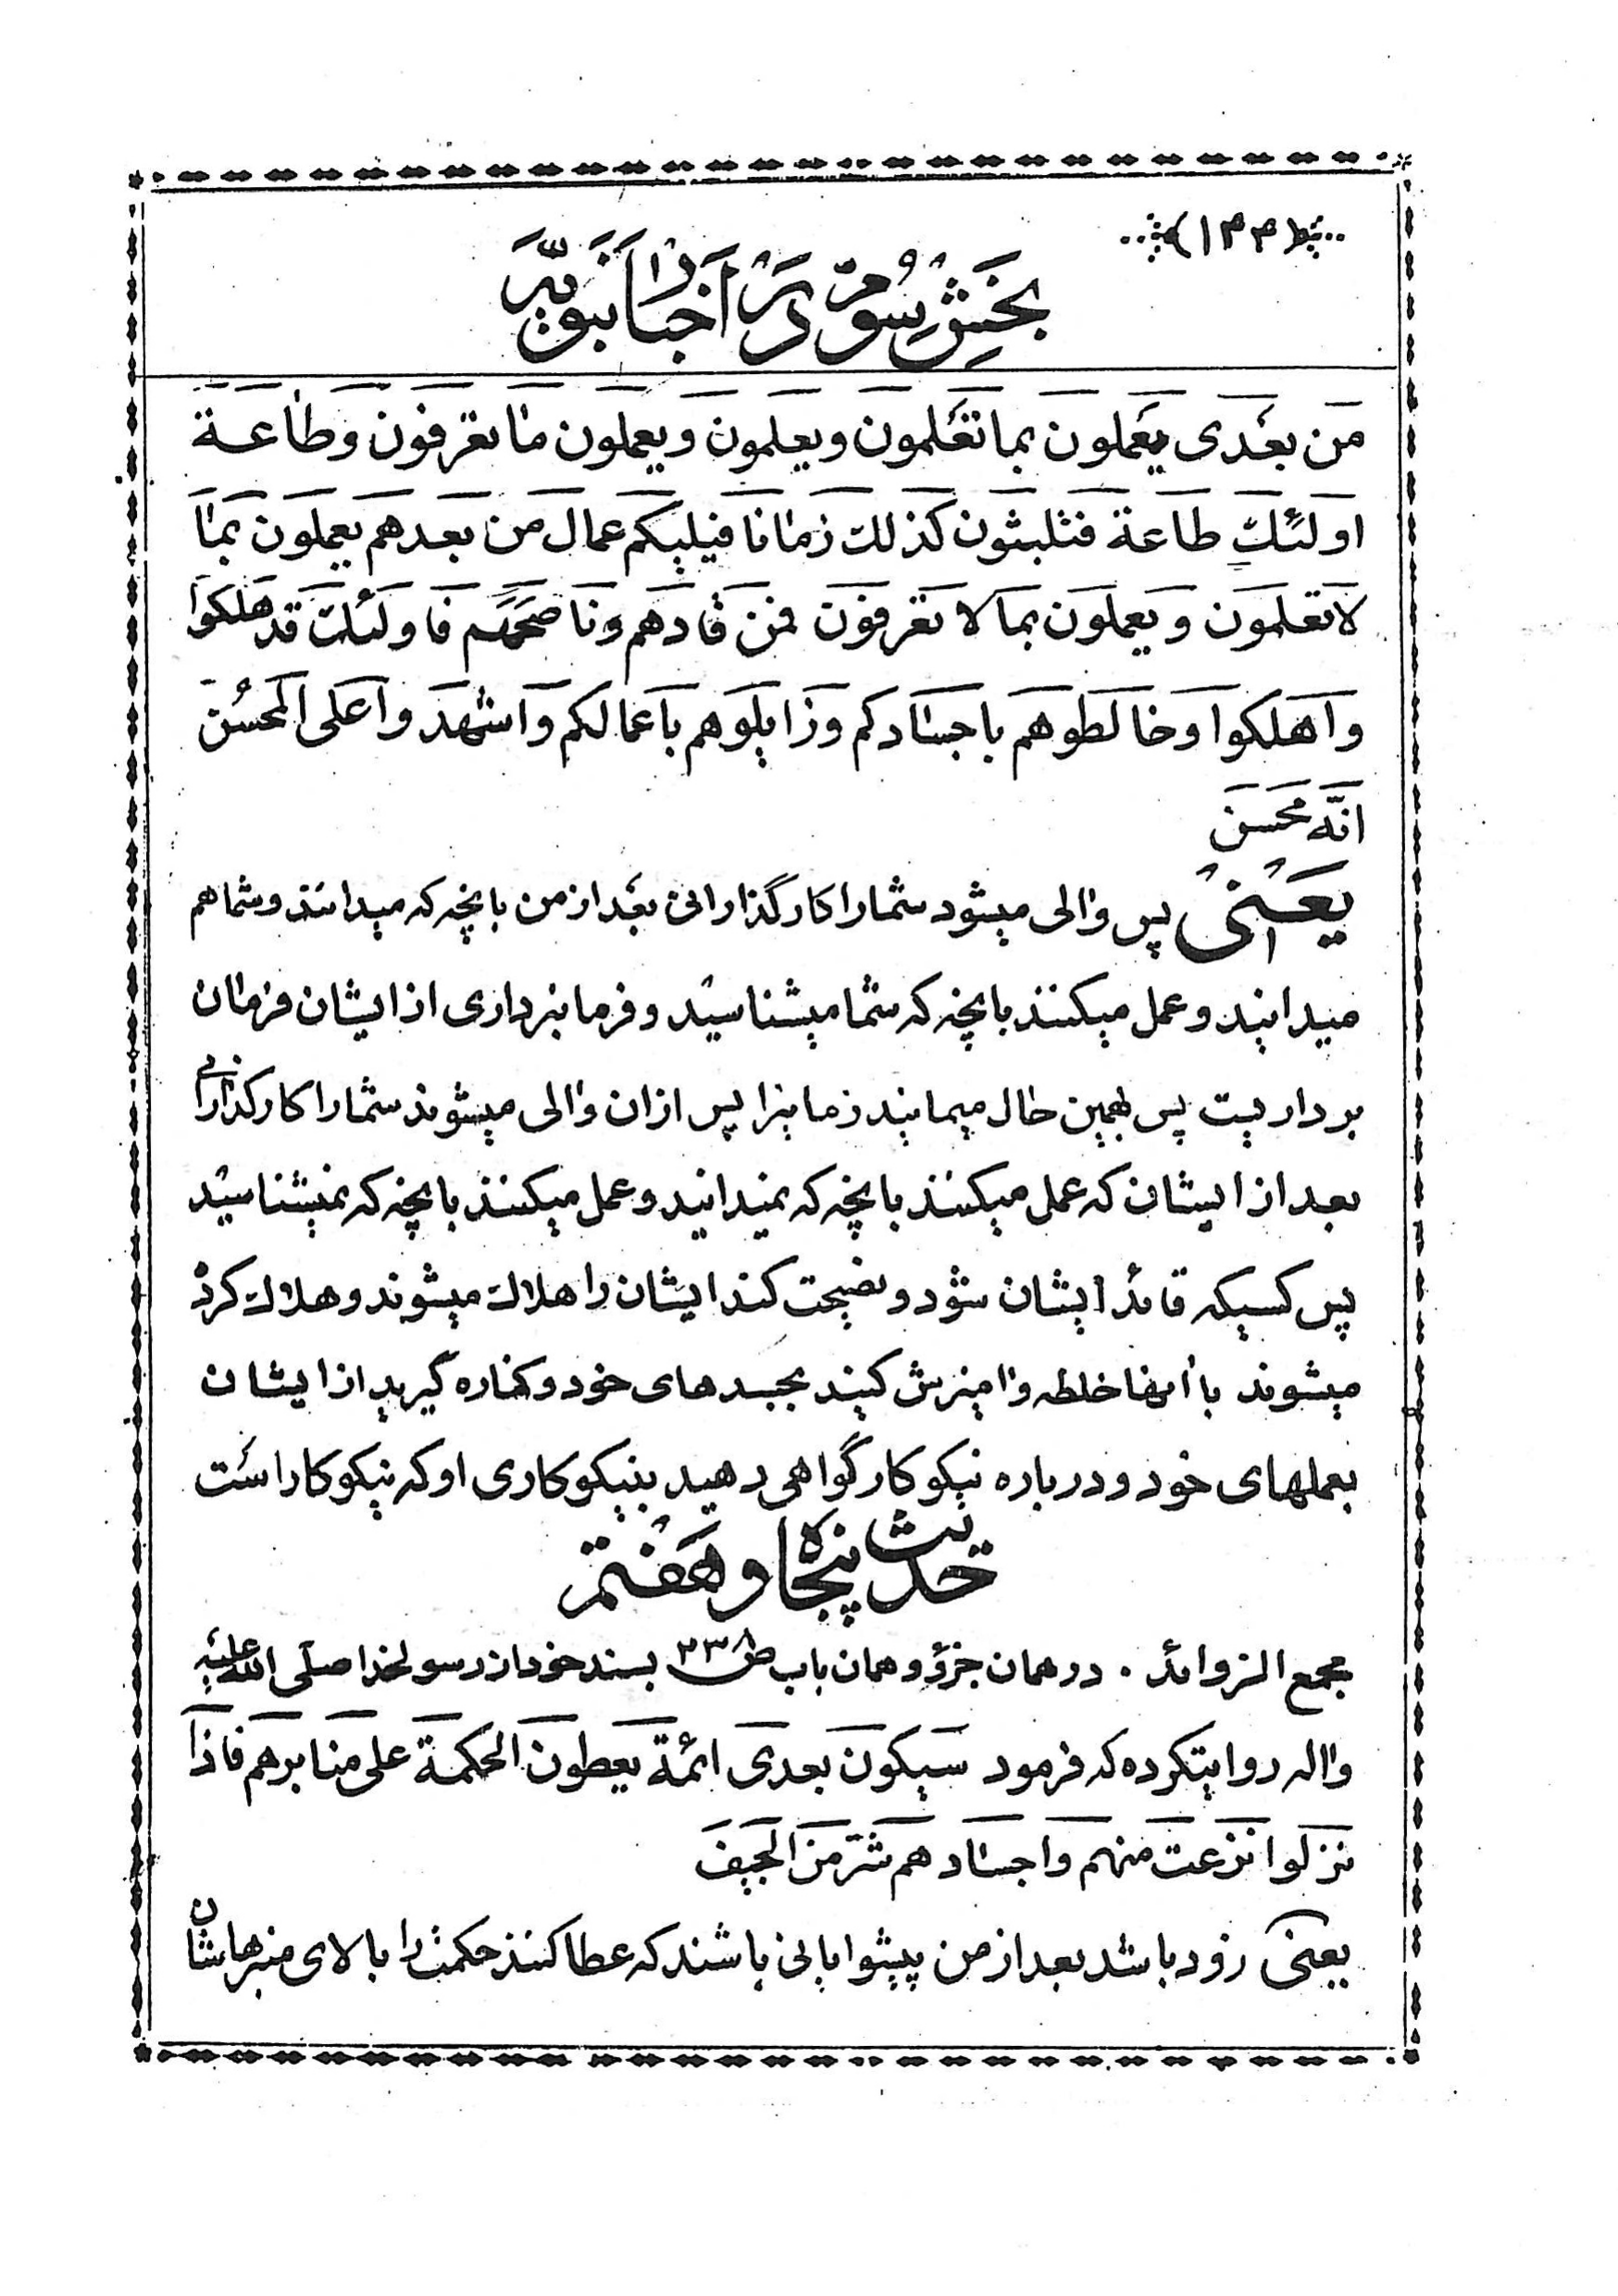 ﴿۱۴۴﴾
بخش سوم در اخبار نبویه
من بعدی یعملون بما تعلمون ویعلمون ویعملون ما تعرفون وطاعة
اولئک طاعة فتلبثون کذلک زمانا فیلیکم عمال من بعدهم یعملون بما
لا تعلمون ویعملون بما لا تعرفون فمن قادهم وناصحهم فاولئک قد هلکوا
واهلکوا وخالطوهم باجسادکم وزایلوهم باعمالکم واشهدوا علی المحسن
انّه محسن
یعنی پس والی میشود شما را کارگذارانی بعد از من بآنچه که میدانند و شما هم
میدانید و عمل میکنند بآنچه که شما میشناسید و فرمانبرداری از ایشان فرمان
برداریست پس بهمین حال میمانید زمانیرا پس ازان والی میشوند شما را کارگذارانی
بعد از ایشان که عمل میکنند بآنچه که نمیدانید و عمل میکنند بآنچه که نمیشناسید
پس کسیکه قائد ایشان شود و نصیحت کند ایشان را هلاک میشوند و هلاک کرده
میشوند با آنها خلطه و امیزش کنید بجسدهای خود و کناره گیرید از ایشان
بعملهای خود و درباره نیکوکار گواهی دهید بنیکوکاری او که نیکوکار است
حدیث پنجاه و هفتم
مجمع الزوائد . در همان جزؤ و همان باب ص۲۳۸ بسند خود از رسولخدا صلّی الله علیه
واله روایتکرده که فرمود سیکون بعدی ائمة یعطون الحکمة علی منابرهم فاذا
نزلوا نزعت منهم واجسادهم شر من الجیف
یعنی زود باشد بعد از من پیشوایانی باشند که عطا کنند حکمت را بالای منبرهاشان